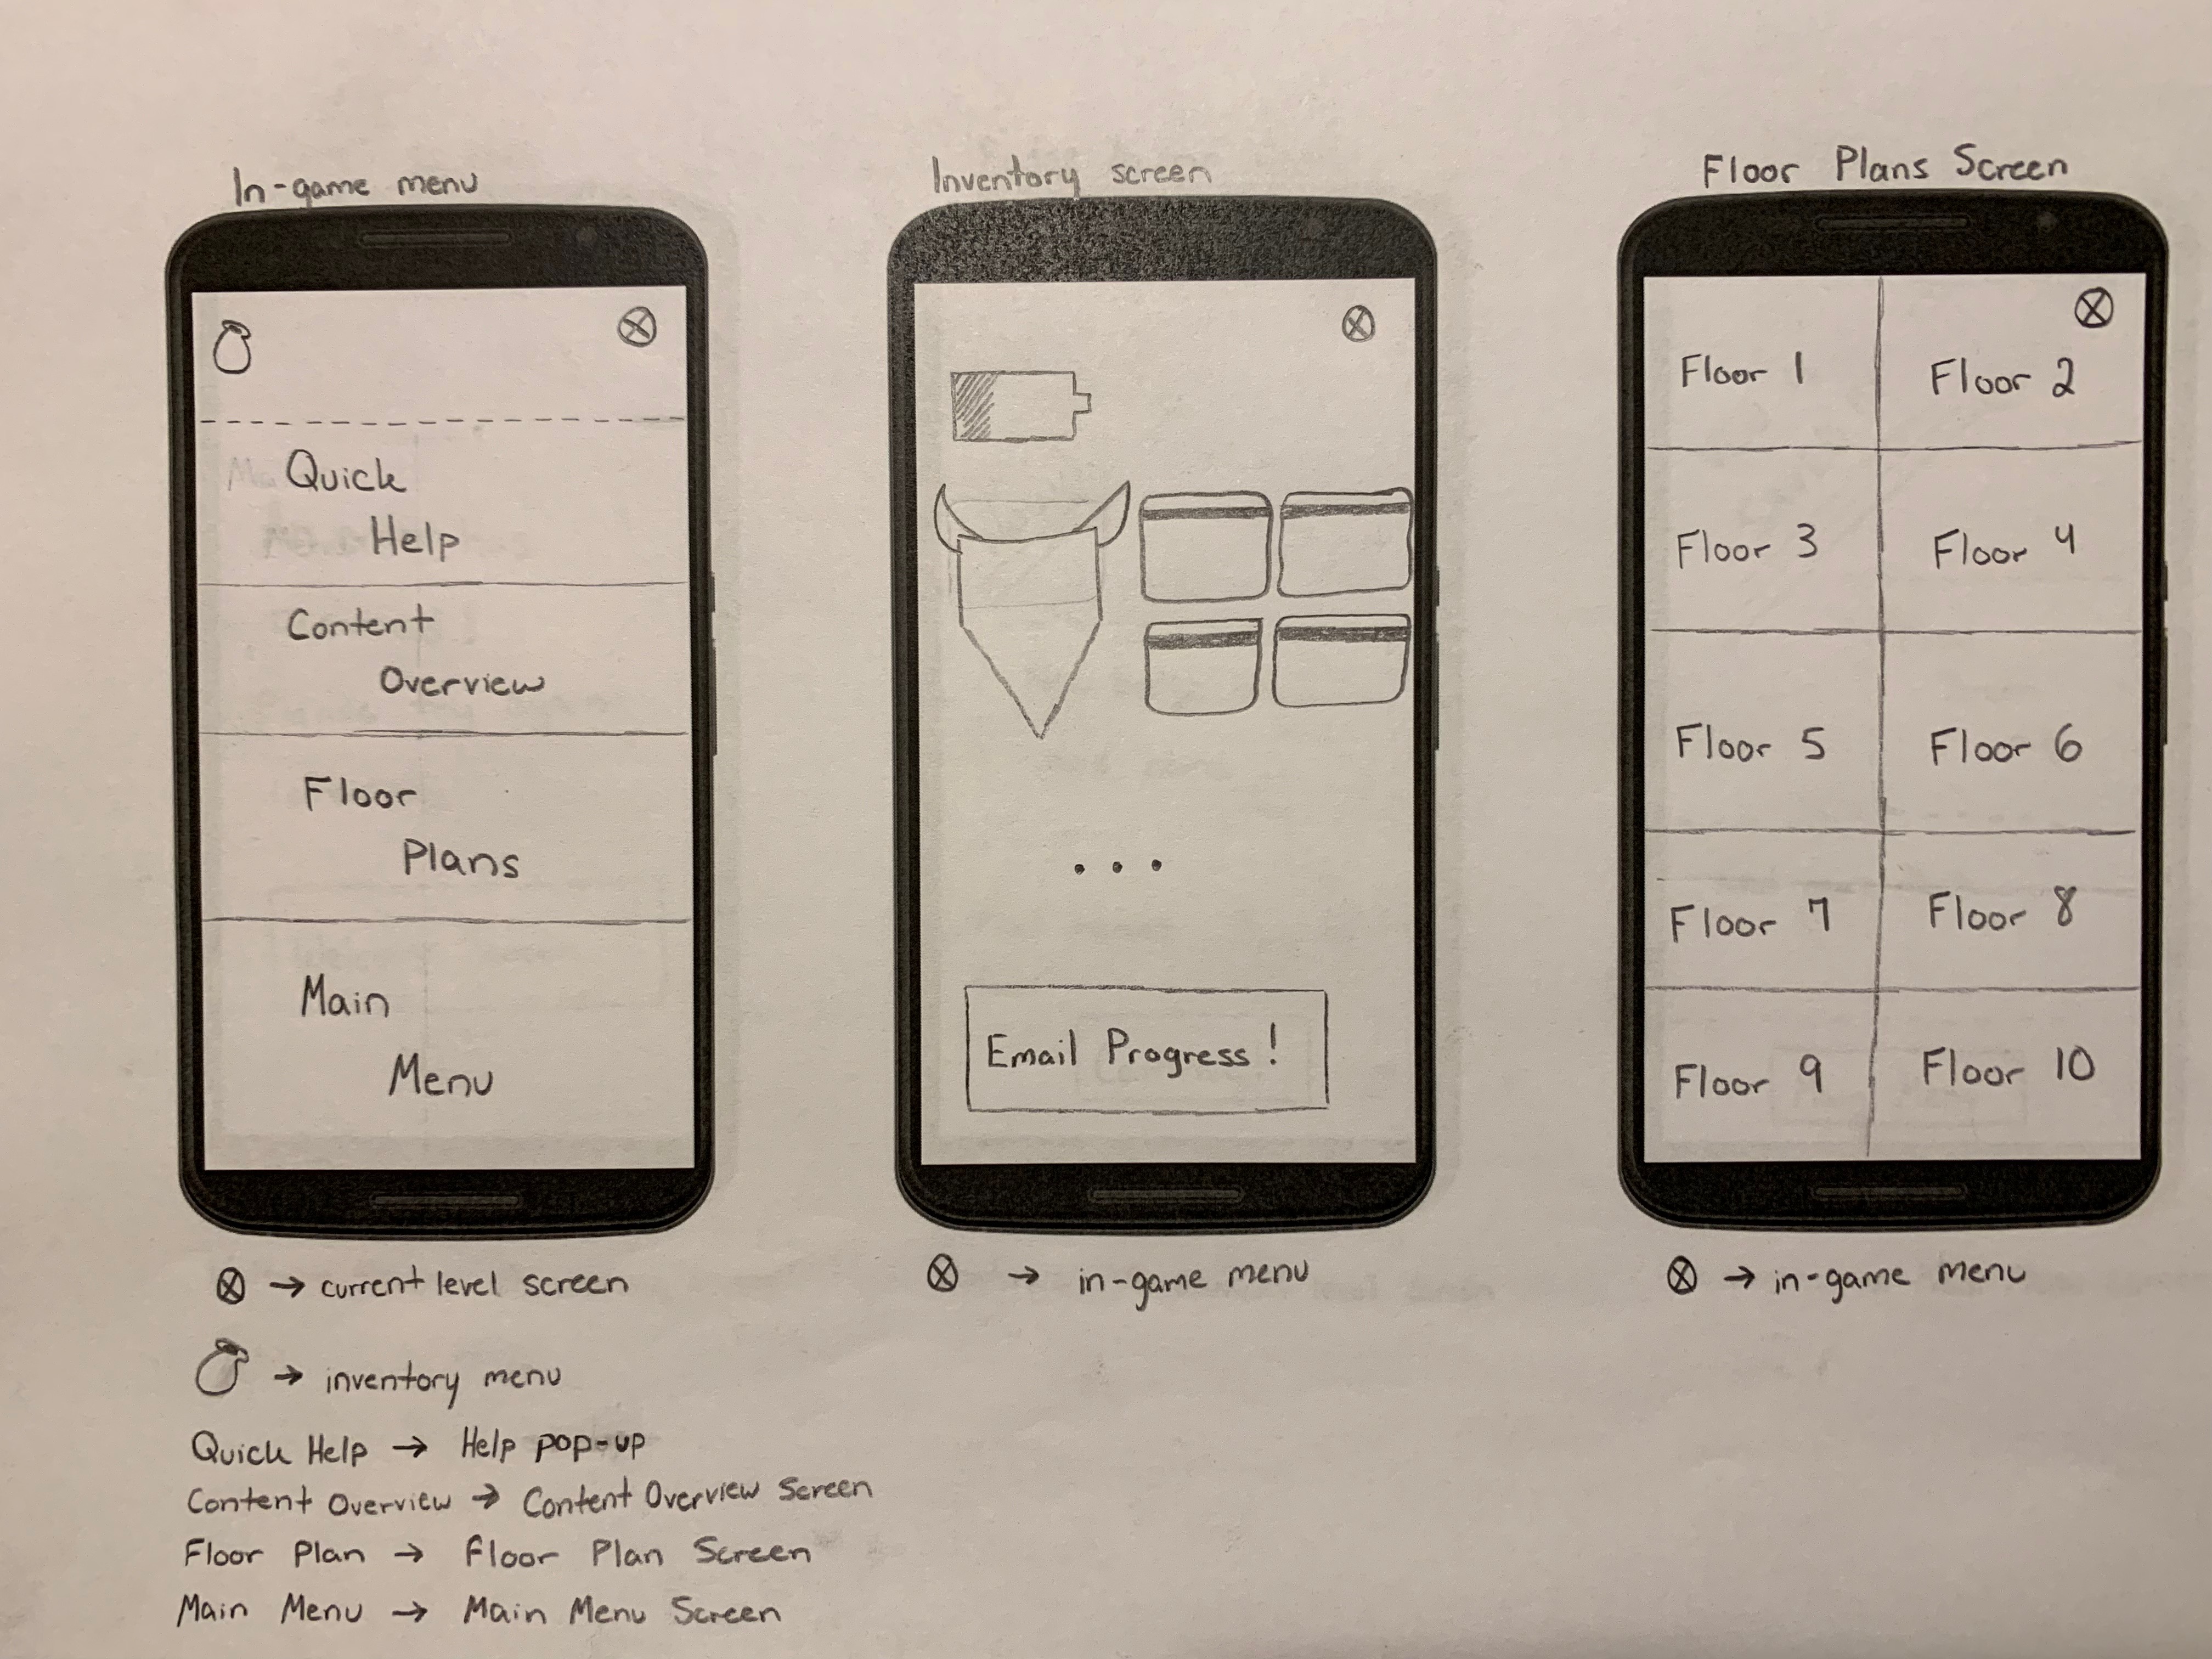 In-game menu
Quick
Help
Content
Overview
Floor
Plans
Main
Menu
ⓧ → current level screen
→ inventory menu
Quick Help → Help pop-up
Content Overview → Content Overview Screen
Floor Plan → Floor Plan Screen
Main Menu → Main Menu Screen
Inventory screen
ⓧ
...
Email Progress!
ⓧ → in-game menu
Floor Plans Screen
ⓧ
Floor 1 Floor 2
Floor 3 Floor 4
Floor 5 Floor 6
Floor 7 Floor 8
Floor 9 Floor 10
ⓧ → in-game menu